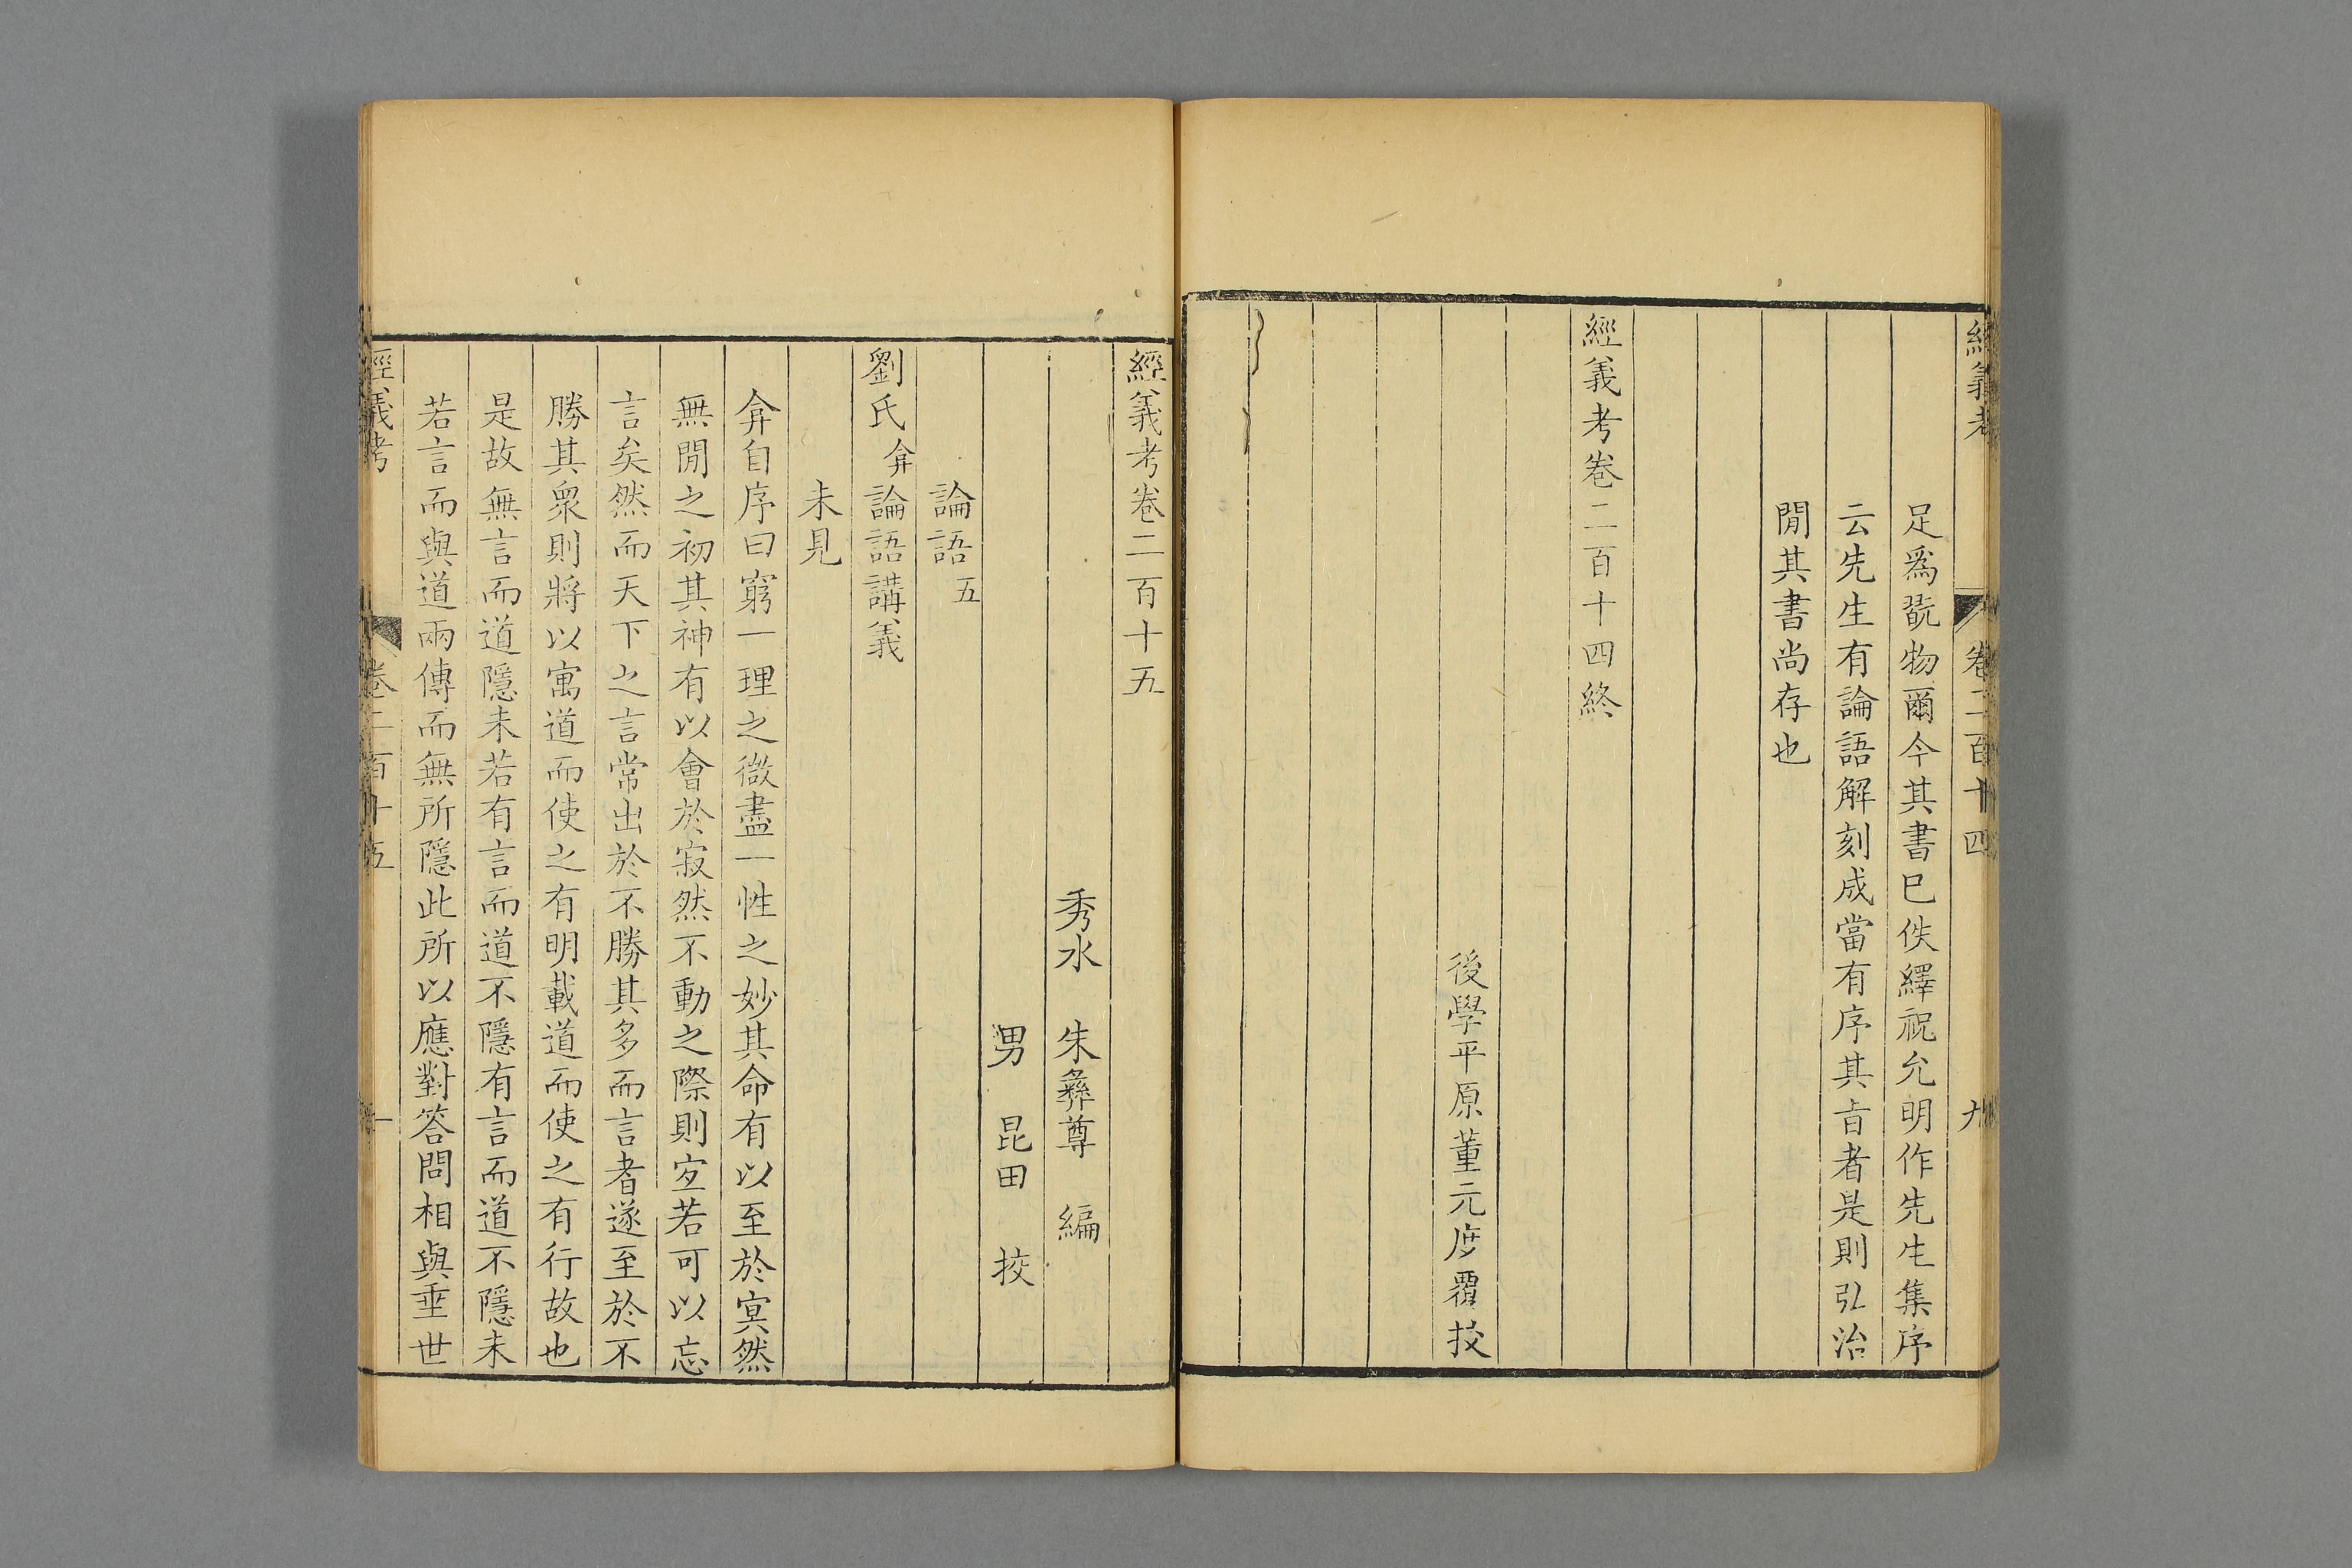 經義考 卷二百十四 九
足爲翫物爾今其書巳佚繹祝允明作先生集序
云先生有論語解刻成當有序其旨者是則弘治
閒其書尚存也
經義考卷二百十四終
後學平原董元度覆挍
經義考卷二百十五
秀水 朱彝尊 編
男 昆田 挍
論語五
劉氏弇論語講義
未見
弇自序曰窮一理之微盡一性之妙其命有以至於寞然
無閒之初其神有以會於寂然不動之際則宐若可以忘
言矣然而天下之言常出於不勝其多而言者遂至於不
勝其衆則將以寓道而使之有明載道而使之有行故也
是故無言而道隱未若有言而道不隱有言而道不隱未
若言而與道兩傳而無所隱此所以應對答問相與垂世
經義考 卷二百十五 一